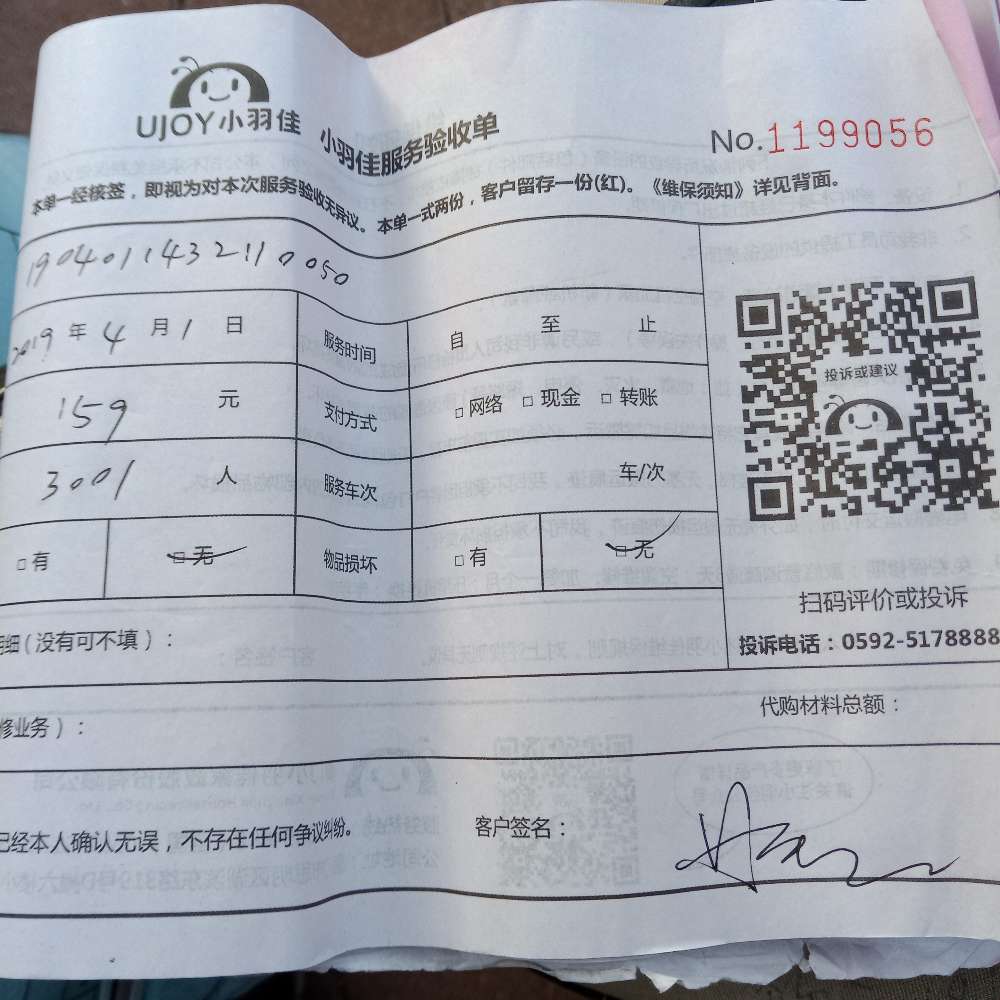 UJOY小羽佳 小羽佳服务验收单 No.1199056
本单一经核签，即视为对本次服务验收无异议。本单一式两份，客户留存一份(红)。《维保须知》详见背面。
1904011432110050
2019年4月1日 服务时间 自 至 止
159 元 支付方式 □网络 □现金 □转账
3001 人 服务车次 车/次
□有 □无 物品损坏 □有 □无
投诉或建议
扫码评价或投诉
投诉电话：0592-5178888
明细(没有可不填)：
修业务)： 代购材料总额：
已经本人确认无误，不存在任何争议纠纷。 客户签名：